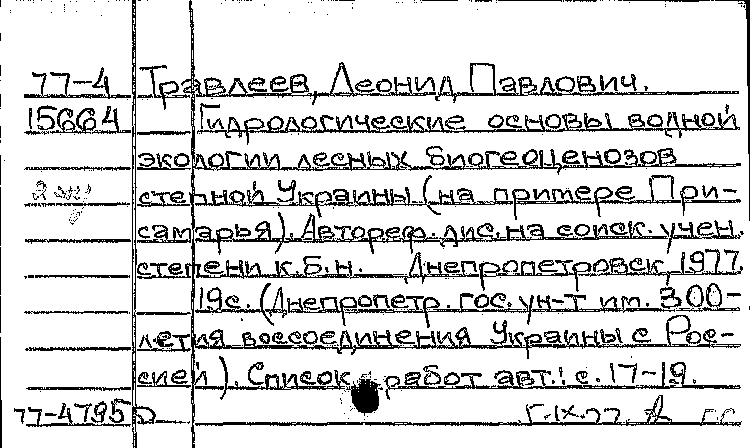 77-4 Травлеев, Леонид Павлович.
15664 Гидрологические основы водной
экологии лесных биогеоценозов
2 экз степной Украины (на примере При-
самарья). Автореф. дис. на соиск. учен.
степени к.б.н. Днепропетровск, 1977.
19с. (Днепропетр. гос. ун-т им. 300-
летия воссоединения Украины с Рос-
сией). Список работ авт.: с. 17-19.
77-4795